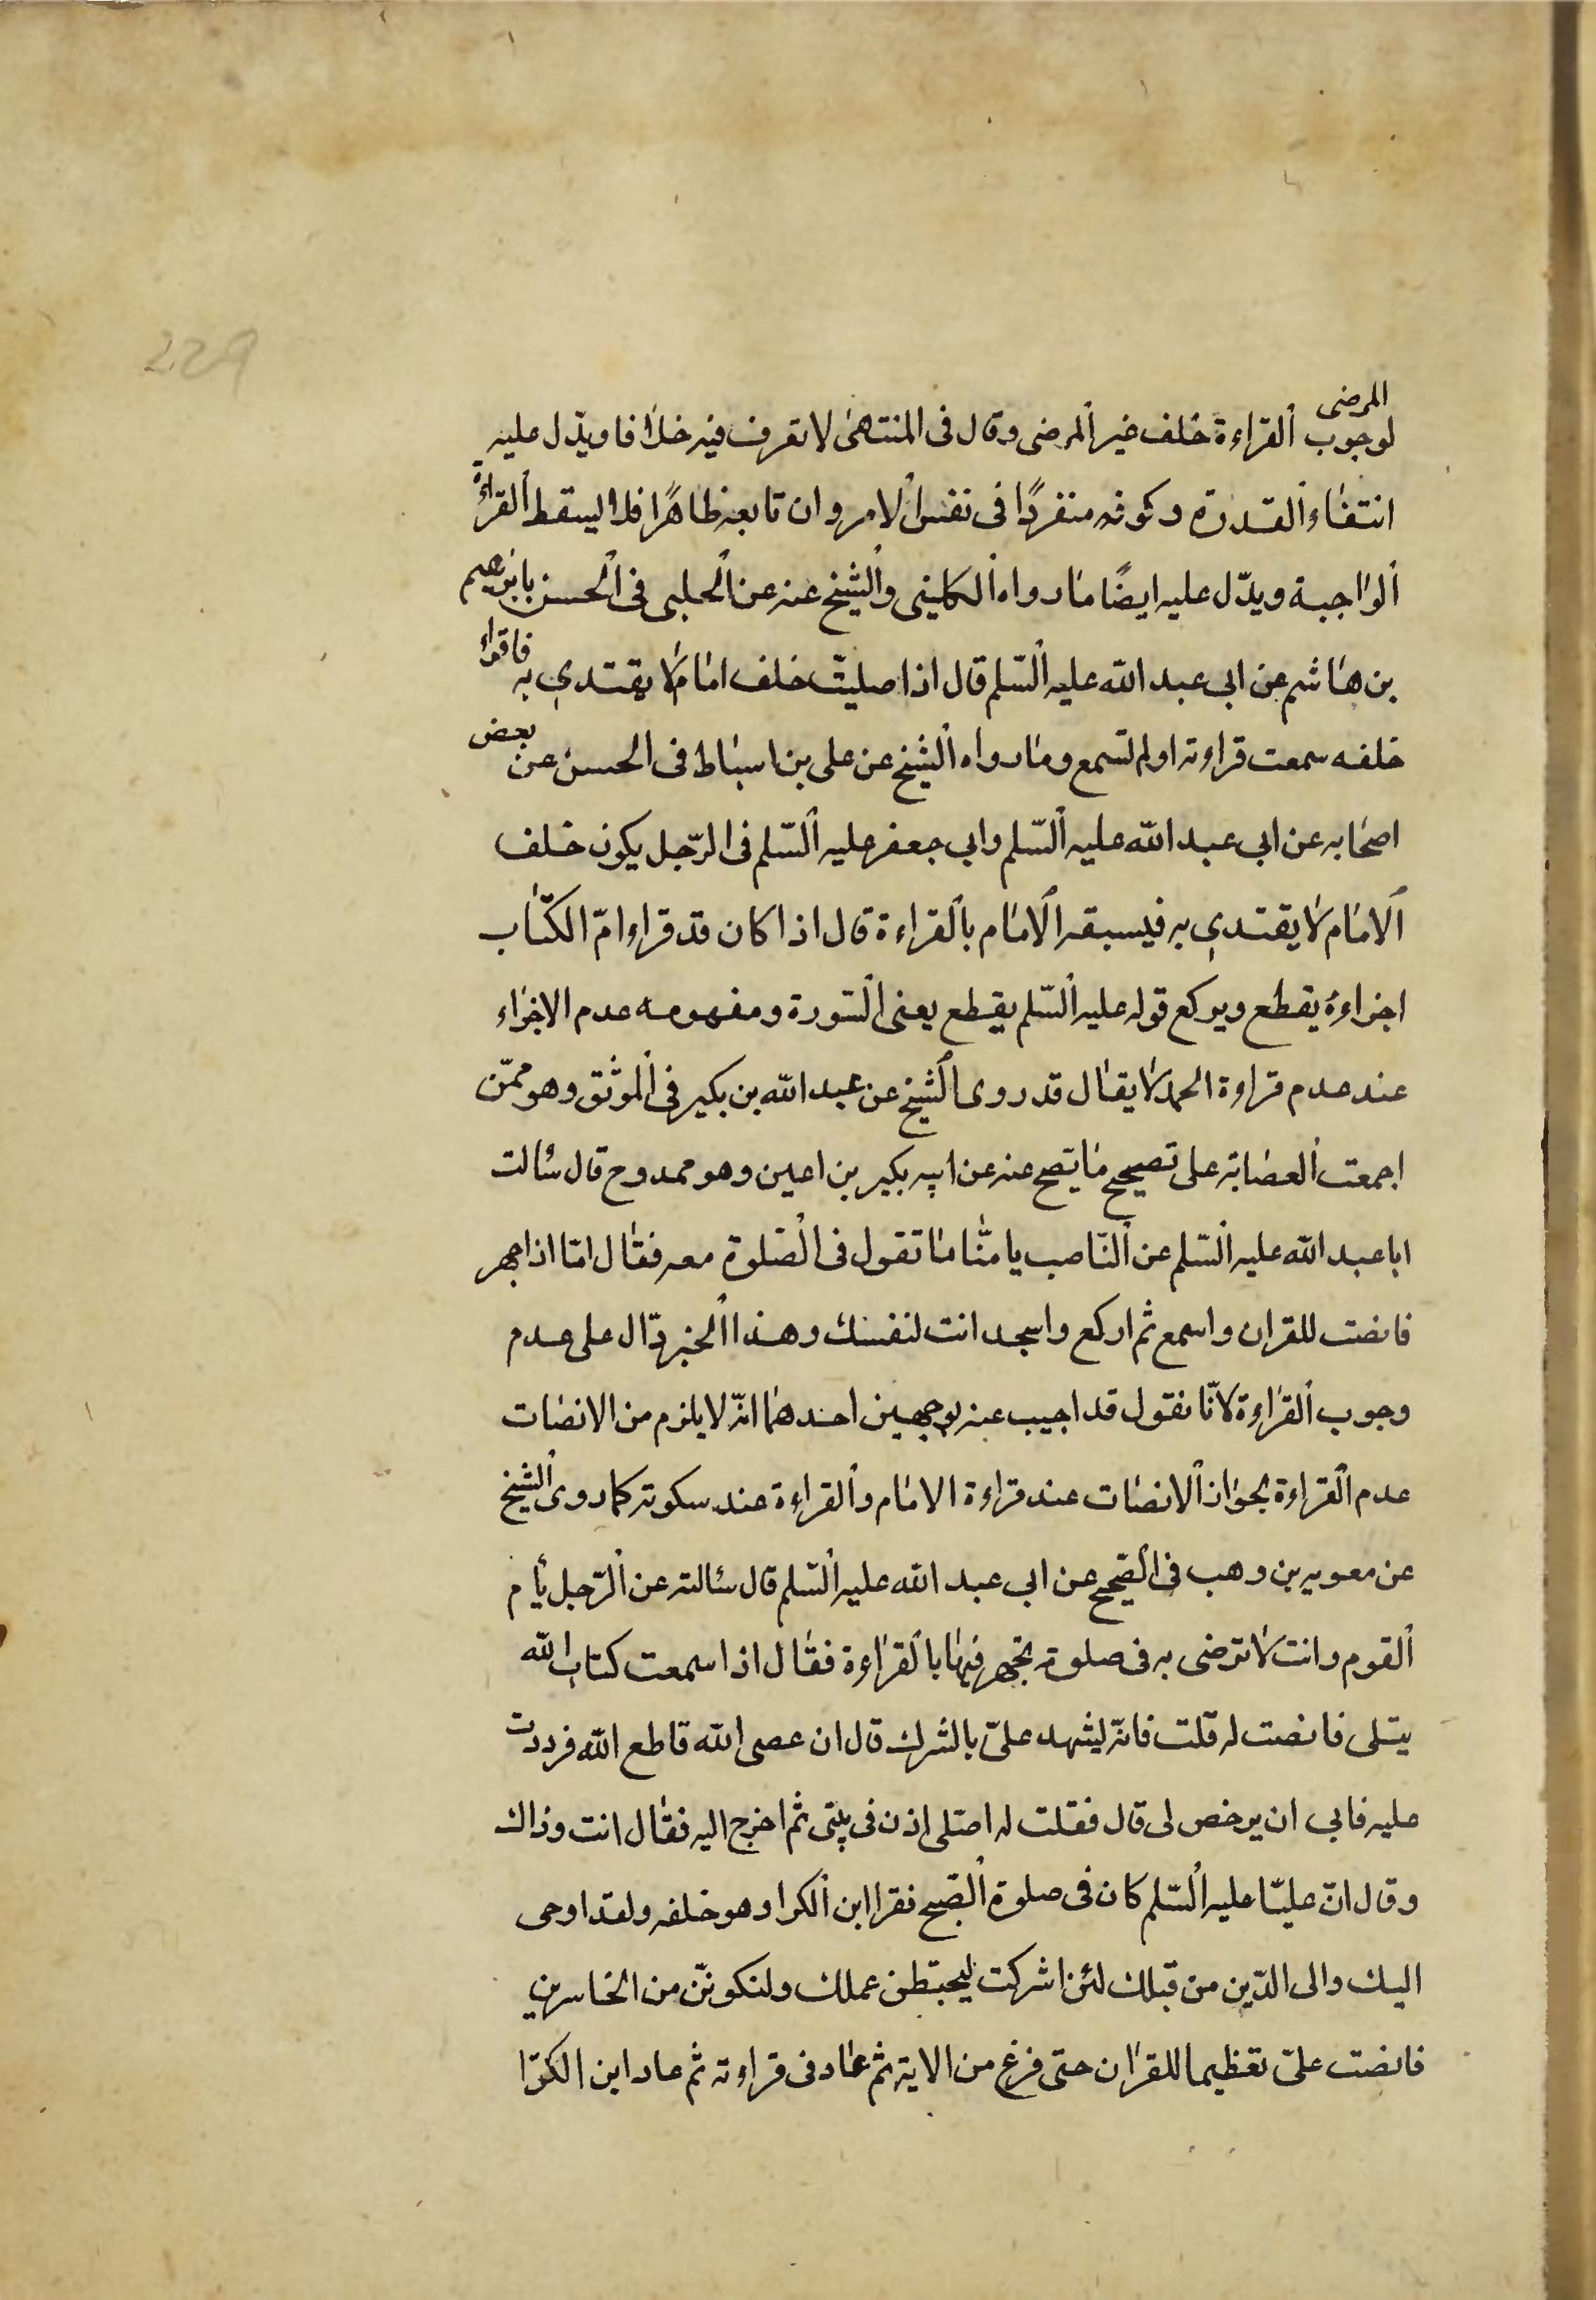 المرضى
لوجوب القراءة خلف غير المرضى وقال فى المنتهى لا تعرف فيه خلافا ويدّل عليه
انتفاء القدوة وكونه منفردًا فى نفس الامر وان تابعه ظاهرًا فلا يسقط القراءة
الواجبة ويدّل عليه ايضًا ما رواه الكلينى والشيخ عنه عن الحلبى فى الحسن بابرهيم
بن هاشم عن ابى عبد الله عليه السّلم قال اذا صليت خلف امام لا يقتدي به فاقراء
خلفه سمعت قراءته اولم تسمع وما رواه الشيخ عن على بن اسباط فى الحسن عن بعض
اصحابه عن ابى عبد الله عليه السّلم وابى جعفر عليه السّلم فى الرّجل يكون خلف
الامام لا يقتدي به فيسبقه الامام بالقراءة قال اذا كان قد قراء امّ الكتاب
اجزاءهُ يقطع ويركع قوله عليه السّلم يقطع يعنى السّورة ومفهومه عدم الاجزاء
عند عدم قراءة الحمد لا يقال قد روى الشيخ عن عبد الله بن بكير فى الموثق وهو ممّن
اجمعت العصابة على تصحيح ما يصّح عنه عن ابيه بكير بن اعين وهو ممدوح قال سُالت
ابا عبد الله عليه السّلم عن النّاصب يامنّا ما تقول فى الصّلوة معه فقال امّا اذا جهر
فانصت للقران واسمع ثم اركع واسجد انت لنفسك وهذا الخبر دّال على عدم
وجوب القراءة لانّا نقول قد اجيب عنه بوجهين احدهما انّه لا يلزم من الانصات
عدم القراءة لجواز الانصات عند قراءة الامام والقراءة عند سكوته كما روى الشيخ
عن معويه بن وهب فى الصّحيح عن ابى عبد الله عليه السّلم قال سئالته عن الرّجل يأم
القوم وانت لا ترضى به فى صلوة تجهر فيها بالقراءة فقال اذا سمعت كتاب الله
يتلى فانصت له قلت فانّه ليشهد علىّ بالشرك قال ان عصى الله فاطع الله فرددت
عليه فابى ان يرخص لى قال فقلت له اصّلى اذن فى بيتى ثم اخرج اليه فقال انت وذاك
وقال انّ عليّا عليه السّلم كان فى صلوة الصّبح فقرا ابن الكوا وهو خلفه ولقد اوحى
اليك والى الذّين من قبلك لئن اشركت ليحبطن عملك ولتكوننّ من الخاسرين
فانصت علىّ تعظيما للقران حتى فرغ من الاية ثم عاد فى قراءته ثم عاد ابن الكوّا